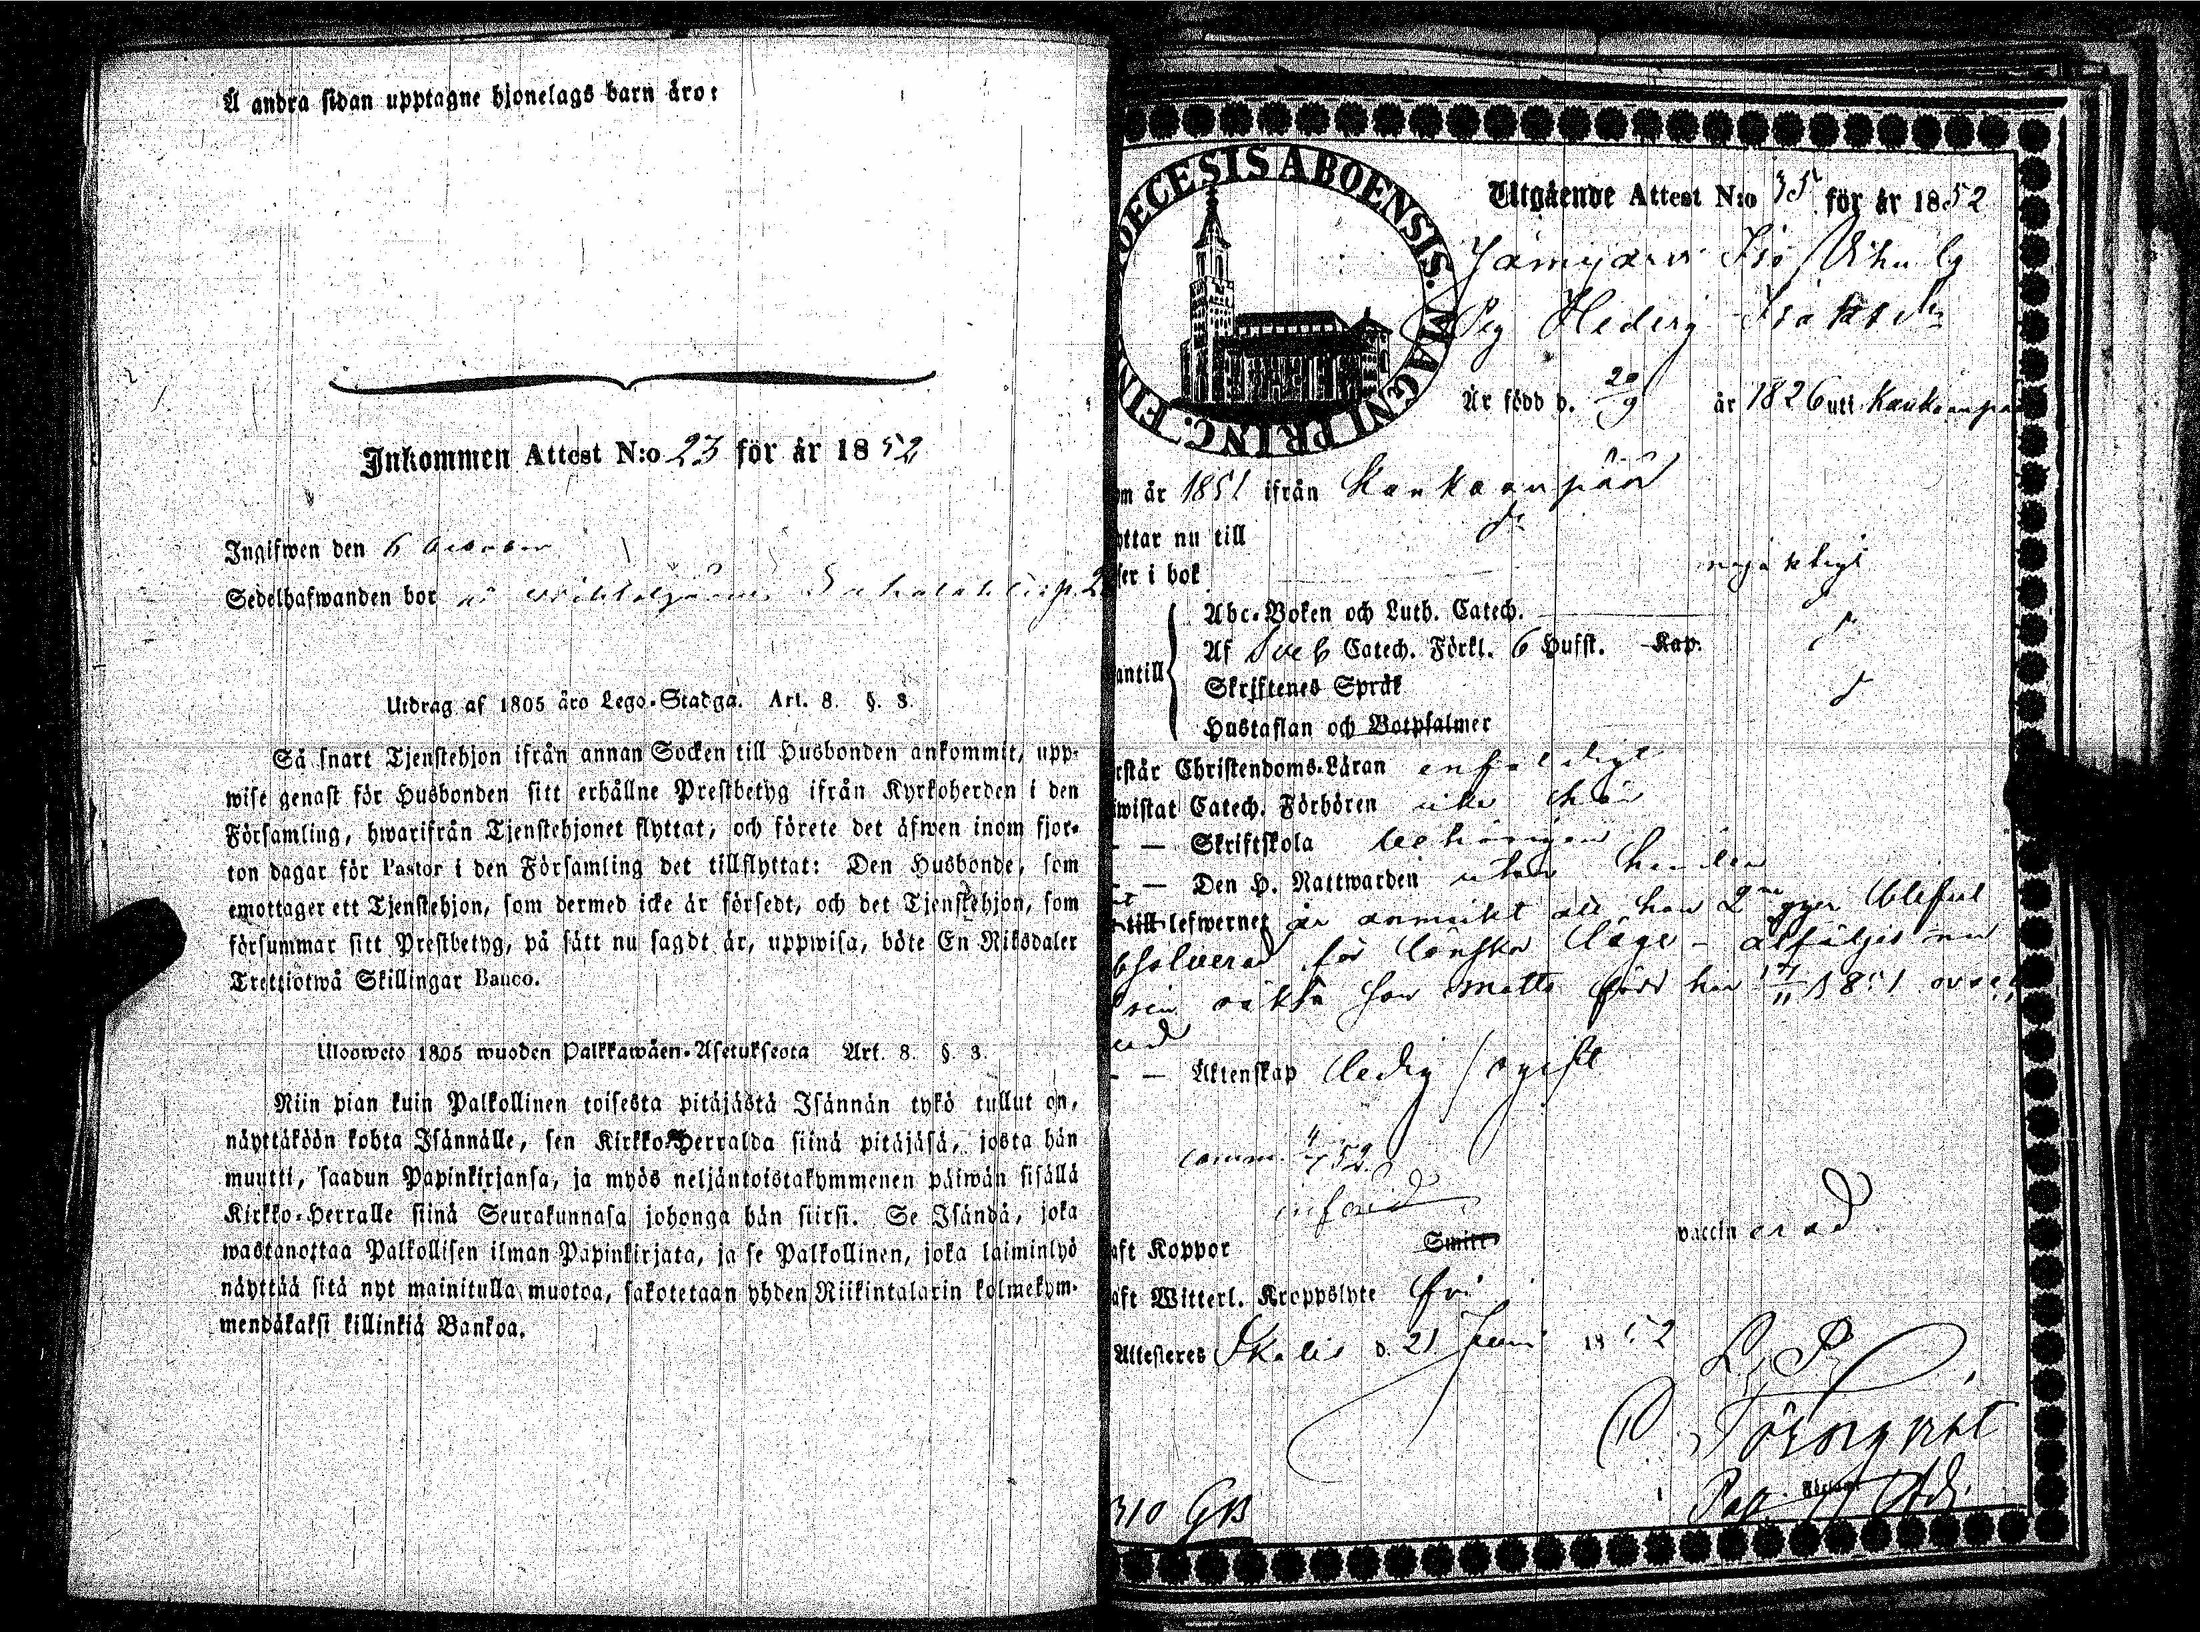 Å andra sidan upptagne hjonelags barn äro:
Inkommen Attest N:o 23 för år 1852
Ingifwen den 6 October
Sedelhafwanden bor
Utdrag af 1805 års Lego-Stadga. Art. 8. §. 3.
Så snart Tjenstehjon ifrån annan Socken till Husbonden ankommit, upp-
wise genast för Husbonden sitt erhållne Prestbetyg ifrån Kyrkoherden i den
Församling, hwarifrån Tjenstehjonet flyttat, och förete det äfwen inom fjor-
ton dagar för Pastor i den Församling det tillflyttat: Den Husbonde, som
emottager ett Tjenstehjon, som dermed icke är försedt, och det Tjenstehjon, som
försummar sitt Prestbetyg, på sätt nu sagdt är, uppwisa, böte En Riksdaler
Trettiotwå Skillingar Banco.
Ulosweto 1805 wuoden Palkkawäen-Asetuksesta Art. 8. §. 3.
Niin pian kuin Palkollinen toisesta pitäjästä Isännän tykö tullut on,
näyttäköön kohta Isännälle, sen Kirkko-Herralda siinä pitäjäsä, josta hän
muutti, saadun Papinkirjansa, ja myös neljäntoistakymmenen päiwän sisällä
Kirkko-Herralle siinä Seurakunnasa johonga hän siirsi. Se Isändä, joka
wastanottaa Palkollisen ilman Papinkirjata, ja se Palkollinen, joka laiminlyö
näyttää sitä nyt mainitulla muotoa, sakotetaan yhden Riikintalarin kolmekym-
mendäkaksi killinkiä Bankoa.
DECESIS ABOENSIS. MAGNI PRINC. FIN
Utgående Attest N:o 35 för år 1852
Pig Hedvig Isaksdr
Är född d. 20/9 år 1826 uti Kankaanpää
om år 1851 ifrån Kankaanpää
yttar nu till do
ser i bok nöjaktigt
Abc-Boken och Luth. Catech.
Af Sveb Catech. Förkl. 6 Hufst. Kap.
antill Skriftenes Språk
Hustaflan och Botpsalmer
rstår Christendoms-Läran enfaldigt
wistat Catech. Förhören
— — Skriftskola behörigen
— — Den H. Nattwarden utan hinder
till lefwernet är anmärkt att hon 2ne ggr blifvit
absolverad för lönska läge - åtföljes nu
sin oäkta son Matts född här 1851
— — Äktenskap ledig / ogift
comm. 52.
aft Koppor Smitt vaccinerad
aft Witterl. Kroppslyte fri
Attesteres d. 21 Juni 1852
Törnqvist
310 GB